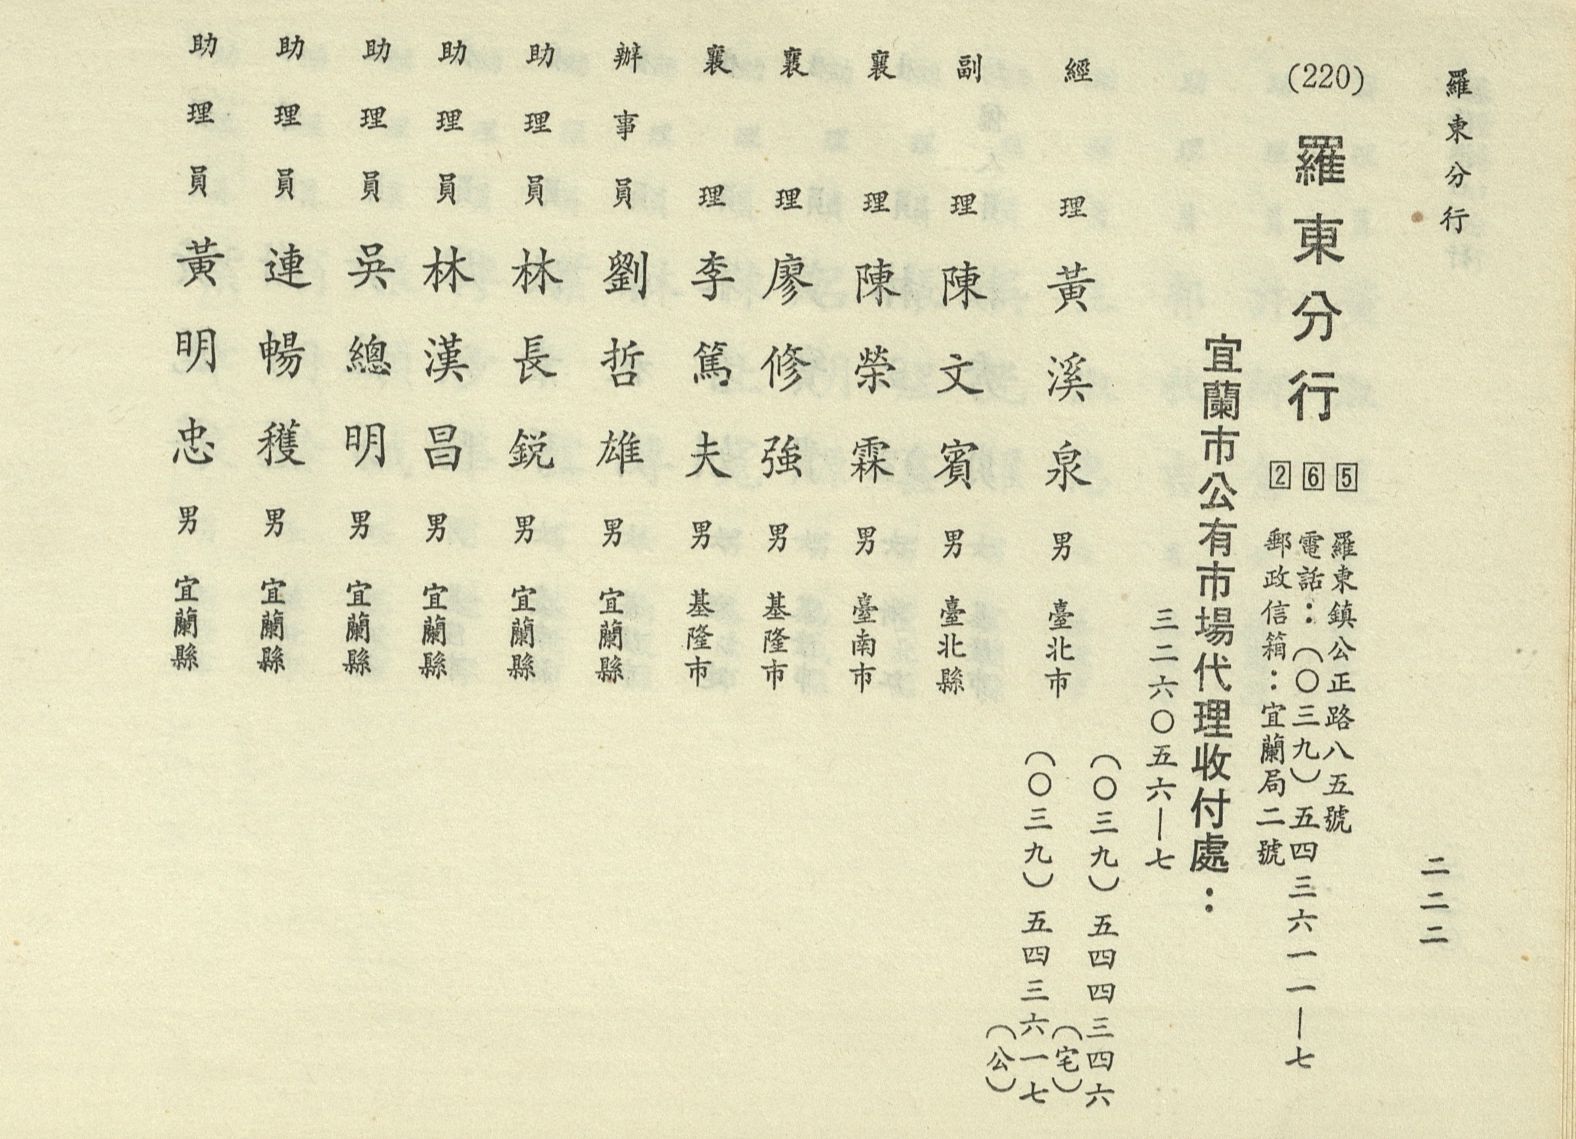 羅東分行
二二二
(220) 羅東分行
265
羅東鎮公正路八五號
電話：(〇三九)五四三六一一—七
郵政信箱：宜蘭局二號
宜蘭市公有市場代理收付處：
三二六〇五六—七
經理 黃溪泉 男 臺北市
(〇三九)五四四三四六(宅)
(〇三九)五四三六一七(公)
副理 陳文賓 男 臺北縣
襄理 陳榮霖 男 臺南市
襄理 廖修強 男 基隆市
襄理 李篤夫 男 基隆市
辦事員 劉哲雄 男 宜蘭縣
助理員 林長銳 男 宜蘭縣
助理員 林漢昌 男 宜蘭縣
助理員 吳總明 男 宜蘭縣
助理員 連暢穫 男 宜蘭縣
助理員 黃明忠 男 宜蘭縣